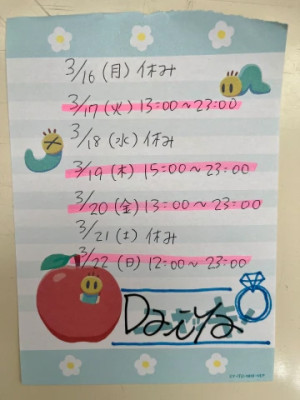 3/16(月)休み
3/17(火)13:00~23:00
3/18(水)休み
3/19(木)15:00~23:00
3/20(金)13:00~23:00
3/21(土)休み
3/22(日)12:00~23:00
Daiya